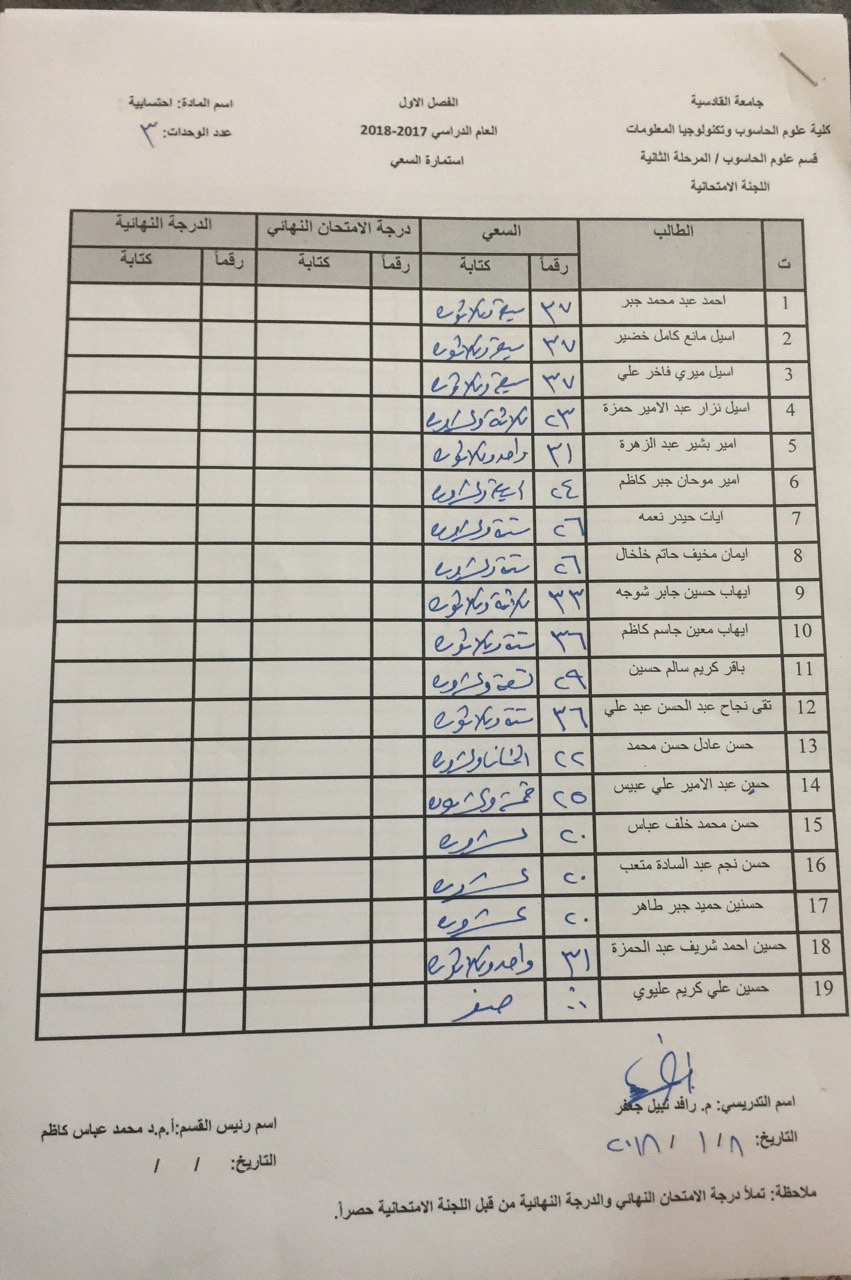 جامعة القادسية
كلية علوم الحاسوب وتكنولوجيا المعلومات
قسم علوم الحاسوب / المرحلة الثانية
اللجنة الامتحانية
الفصل الاول
العام الدراسي 2017-2018
استمارة السعي
اسم المادة: احتسابية
عدد الوحدات: ٣
ت الطالب السعي درجة الامتحان النهائي الدرجة النهائية
رقماً كتابة رقماً كتابة رقماً كتابة
1 احمد عبد محمد جبر ٣٧ سبعة وثلاثون
2 اسيل مانع كامل خضير ٣٧ سبعة وثلاثون
3 اسيل ميري فاخر علي ٣٧ سبعة وثلاثون
4 اسيل نزار عبد الامير حمزة ٢٣ ثلاثة وعشرون
5 امير بشير عبد الزهرة ٣١ واحد وثلاثون
6 امير موحان جبر كاظم ٢٤ اربعة وعشرون
7 ايات حيدر نعمه ٢٦ ستة وعشرون
8 ايمان مخيف حاتم خلخال ٢٦ ستة وعشرون
9 ايهاب حسين جابر شوجه ٣٣ ثلاثة وثلاثون
10 ايهاب معين جاسم كاظم ٣٦ ستة وثلاثون
11 باقر كريم سالم حسين ٢٩ تسعة وعشرون
12 تقى نجاح عبد الحسن عبد علي ٣٦ ستة وثلاثون
13 حسن عادل حسن محمد ٢٢ اثنان وعشرون
14 حسين عبد الامير علي عبيس ٢٥ خمسة وعشرون
15 حسن محمد خلف عباس ٢٠ عشرون
16 حسن نجم عبد السادة متعب ٢٠ عشرون
17 حسنين حميد جبر طاهر ٢٠ عشرون
18 حسين احمد شريف عبد الحمزة ٣١ واحد وثلاثون
19 حسين علي كريم عليوي صفر
اسم التدريسي: م. رافد نبيل جعفر
التاريخ: ٨ / ١ / ٢٠١٨
اسم رئيس القسم:أ.م.د محمد عباس كاظم
التاريخ: / /
ملاحظة: تملأ درجة الامتحان النهائي والدرجة النهائية من قبل اللجنة الامتحانية حصراً.